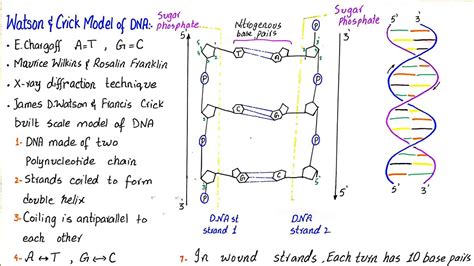 Watson & Crick Model of DNA:-
• E.Chargoff A=T , G=C
• Maurice Wilkins & Rosalin Franklin
• X-ray diffraction technique
• James D.Watson & Francis Crick
built scale model of DNA
1- DNA made of two
Polynucleotide chain
2- Strands coiled to form
double helix
3- Coiling is antiparallel to
each other
4- A ↔ T , G ↔ C
Sugar
Phosphate
Ntiogenous
base pairs
Sugar
Phosphate
5'
3'
P
T
A
P
P
C
G
P
P
P
3'
5'
DNA st
strand 1
DNA
strand 2
5'
3'
3'
5'
7- In wound strands, Each turn has 10 base pairs